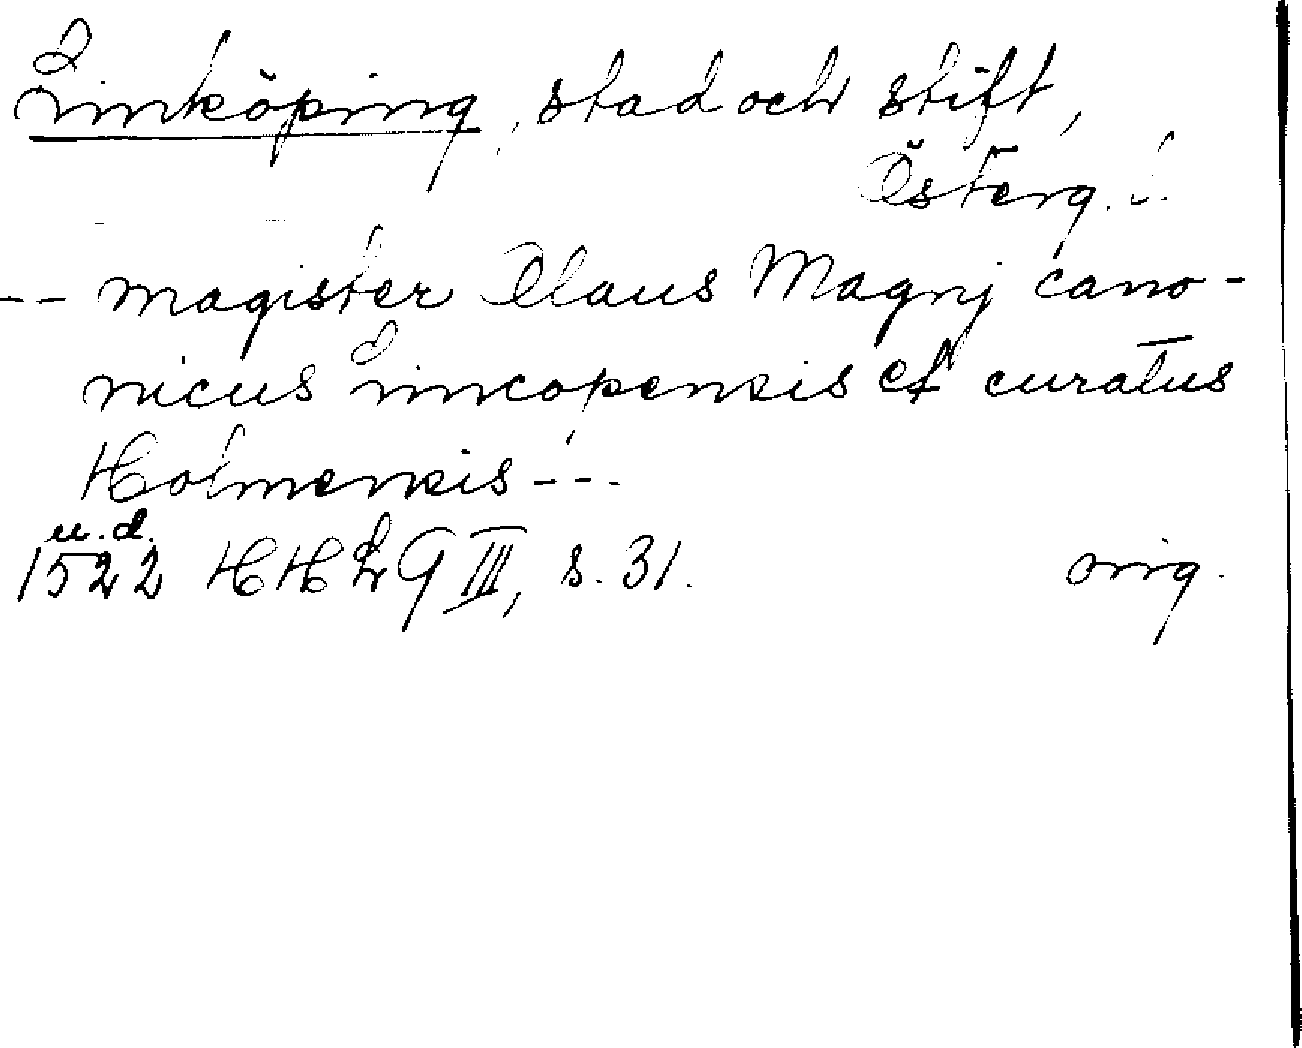 Linköping, stad och stift,
Österg. l.
-- magister Olaus Magnj cano-
nicus Lincopensis et curatus
Holmensis ---
u.d.
1522 HH LG III, s. 31. orig.